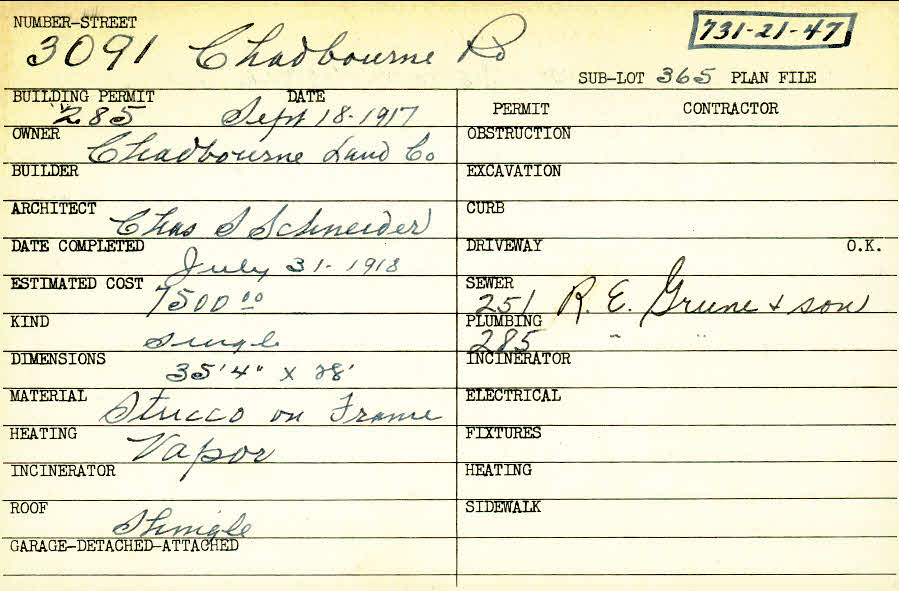 NUMBER-STREET
3091 Chadbourne Rd
731-21-47
SUB-LOT 365 PLAN FILE
BUILDING PERMIT DATE
285 Sept 18-1917
OWNER
Chadbourne Land Co
BUILDER
ARCHITECT
Chas S Schneider
DATE COMPLETED
July 31-1918
ESTIMATED COST
7500 00
KIND
Single
DIMENSIONS
35'4" x 28'
MATERIAL
Stucco on Frame
HEATING
Vapor
INCINERATOR
ROOF
Shingle
GARAGE-DETACHED-ATTACHED
PERMIT CONTRACTOR
OBSTRUCTION
EXCAVATION
CURB
DRIVEWAY O.K.
SEWER
251 R. E. Grune & son
PLUMBING
285 " "
INCINERATOR
ELECTRICAL
FIXTURES
HEATING
SIDEWALK